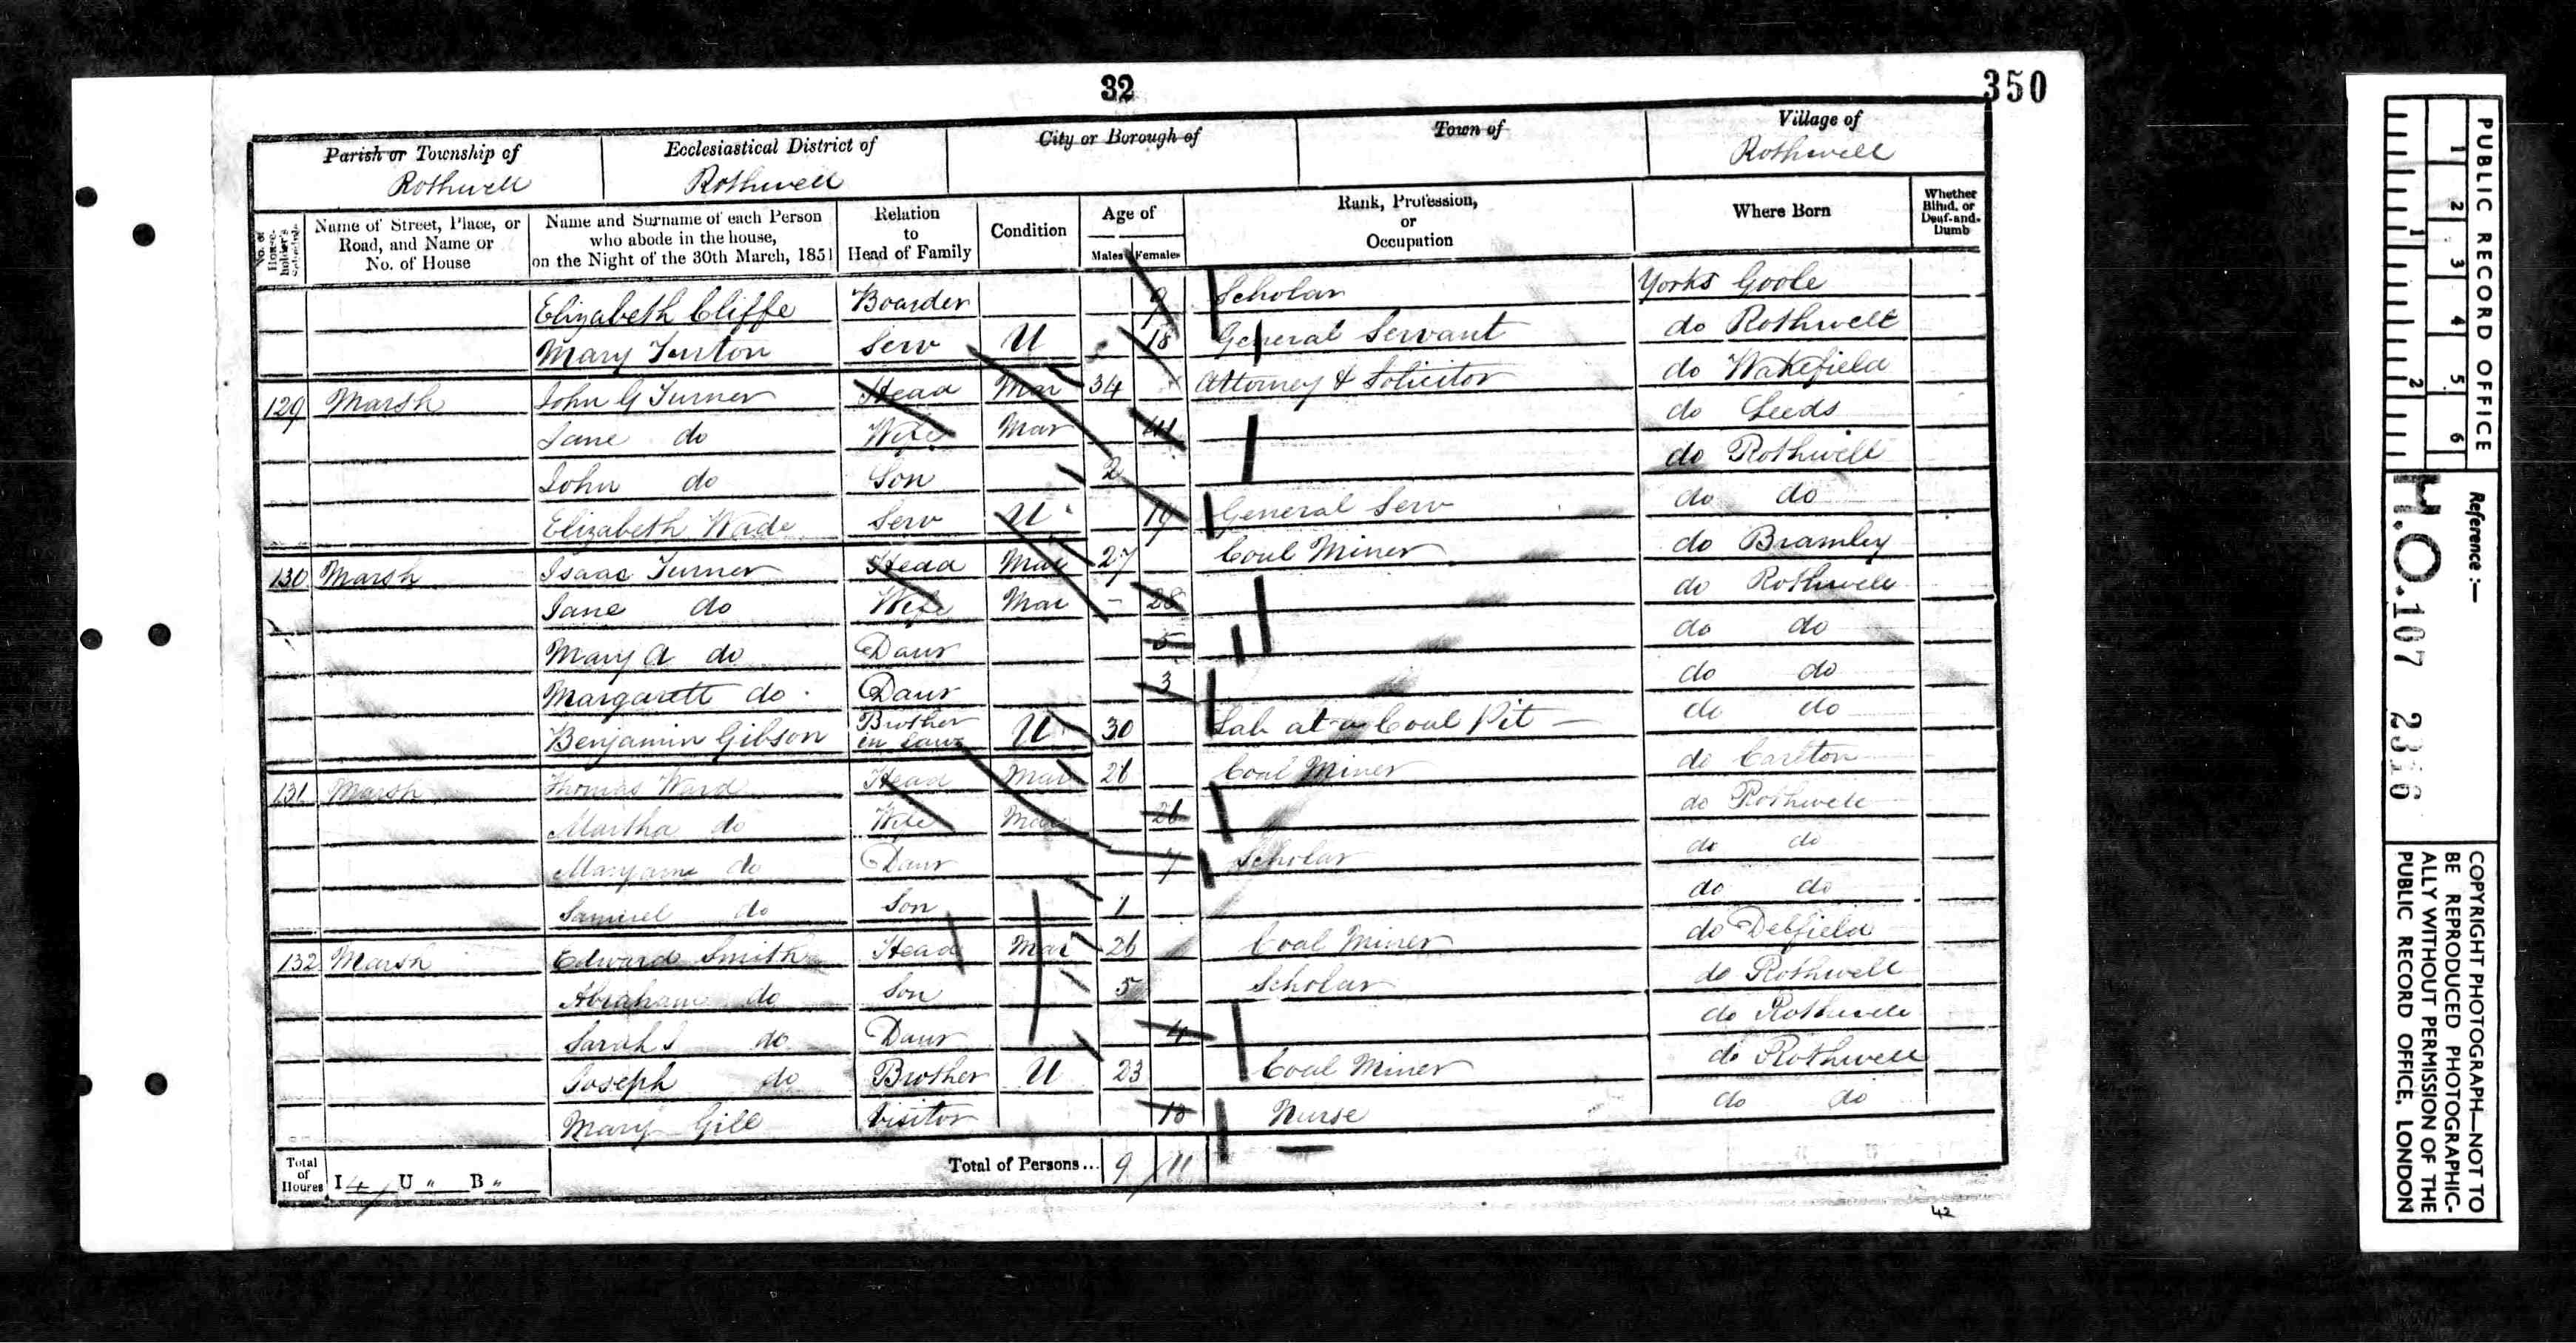 32
350
Parish or Township of
Rothwell
Ecclesiastical District of
Rothwell
City or Borough of
Town of
Village of
Rothwell
No. of House-holder's Schedule
Name of Street, Place, or Road, and Name or No. of House
Name and Surname of each Person who abode in the house, on the Night of the 30th March, 1851
Relation to Head of Family
Condition
Age of
Males Females
Rank, Profession, or Occupation
Where Born
Whether Blind, or Deaf-and-Dumb
Elizabeth Cliffe Boarder 9 Scholar Yorks Goole
Mary Turton Serv U 18 General Servant do Rothwell
129 Marsh John G Turner Head Mar 34 Attorney & Solicitor do Wakefield
Jane do Wife Mar do Leeds
John do Son 2 do Rothwell
Elizabeth Wade Serv U 19 General Serv do do
130 Marsh Isaac Turner Head Mar 27 Coal Miner do Bramley
Jane do Wife Mar - 28 do Rothwell
Mary A do Daur 5 do do
Margarett do Daur 3 do do
Benjamin Gibson Brother in Law U 30 Lab at a Coal Pit do do
131 Marsh Thomas Ward Head Mar 26 Coal Miner do Carlton
Martha do Wife Mar 26 do Rothwell
Maryann do Daur 7 Scholar do do
Samuel do Son 1 do do
132 Marsh Edward Smith Head Mar 26 Coal Miner do
Abraham do Son 5 Scholar do Rothwell
Sarah J do Daur 4 do Rothwell
Joseph do Brother U 23 Coal Miner do Rothwell
Mary Gill Visitor Nurse do do
Total of Houses I 4 U " B "
Total of Persons... 9 11
42
PUBLIC RECORD OFFICE
1 2 3 4 5 6
1 2
Reference :-
H.O. 107 2316
COPYRIGHT PHOTOGRAPH—NOT TO
BE REPRODUCED PHOTOGRAPHIC-
ALLY WITHOUT PERMISSION OF THE
PUBLIC RECORD OFFICE, LONDON